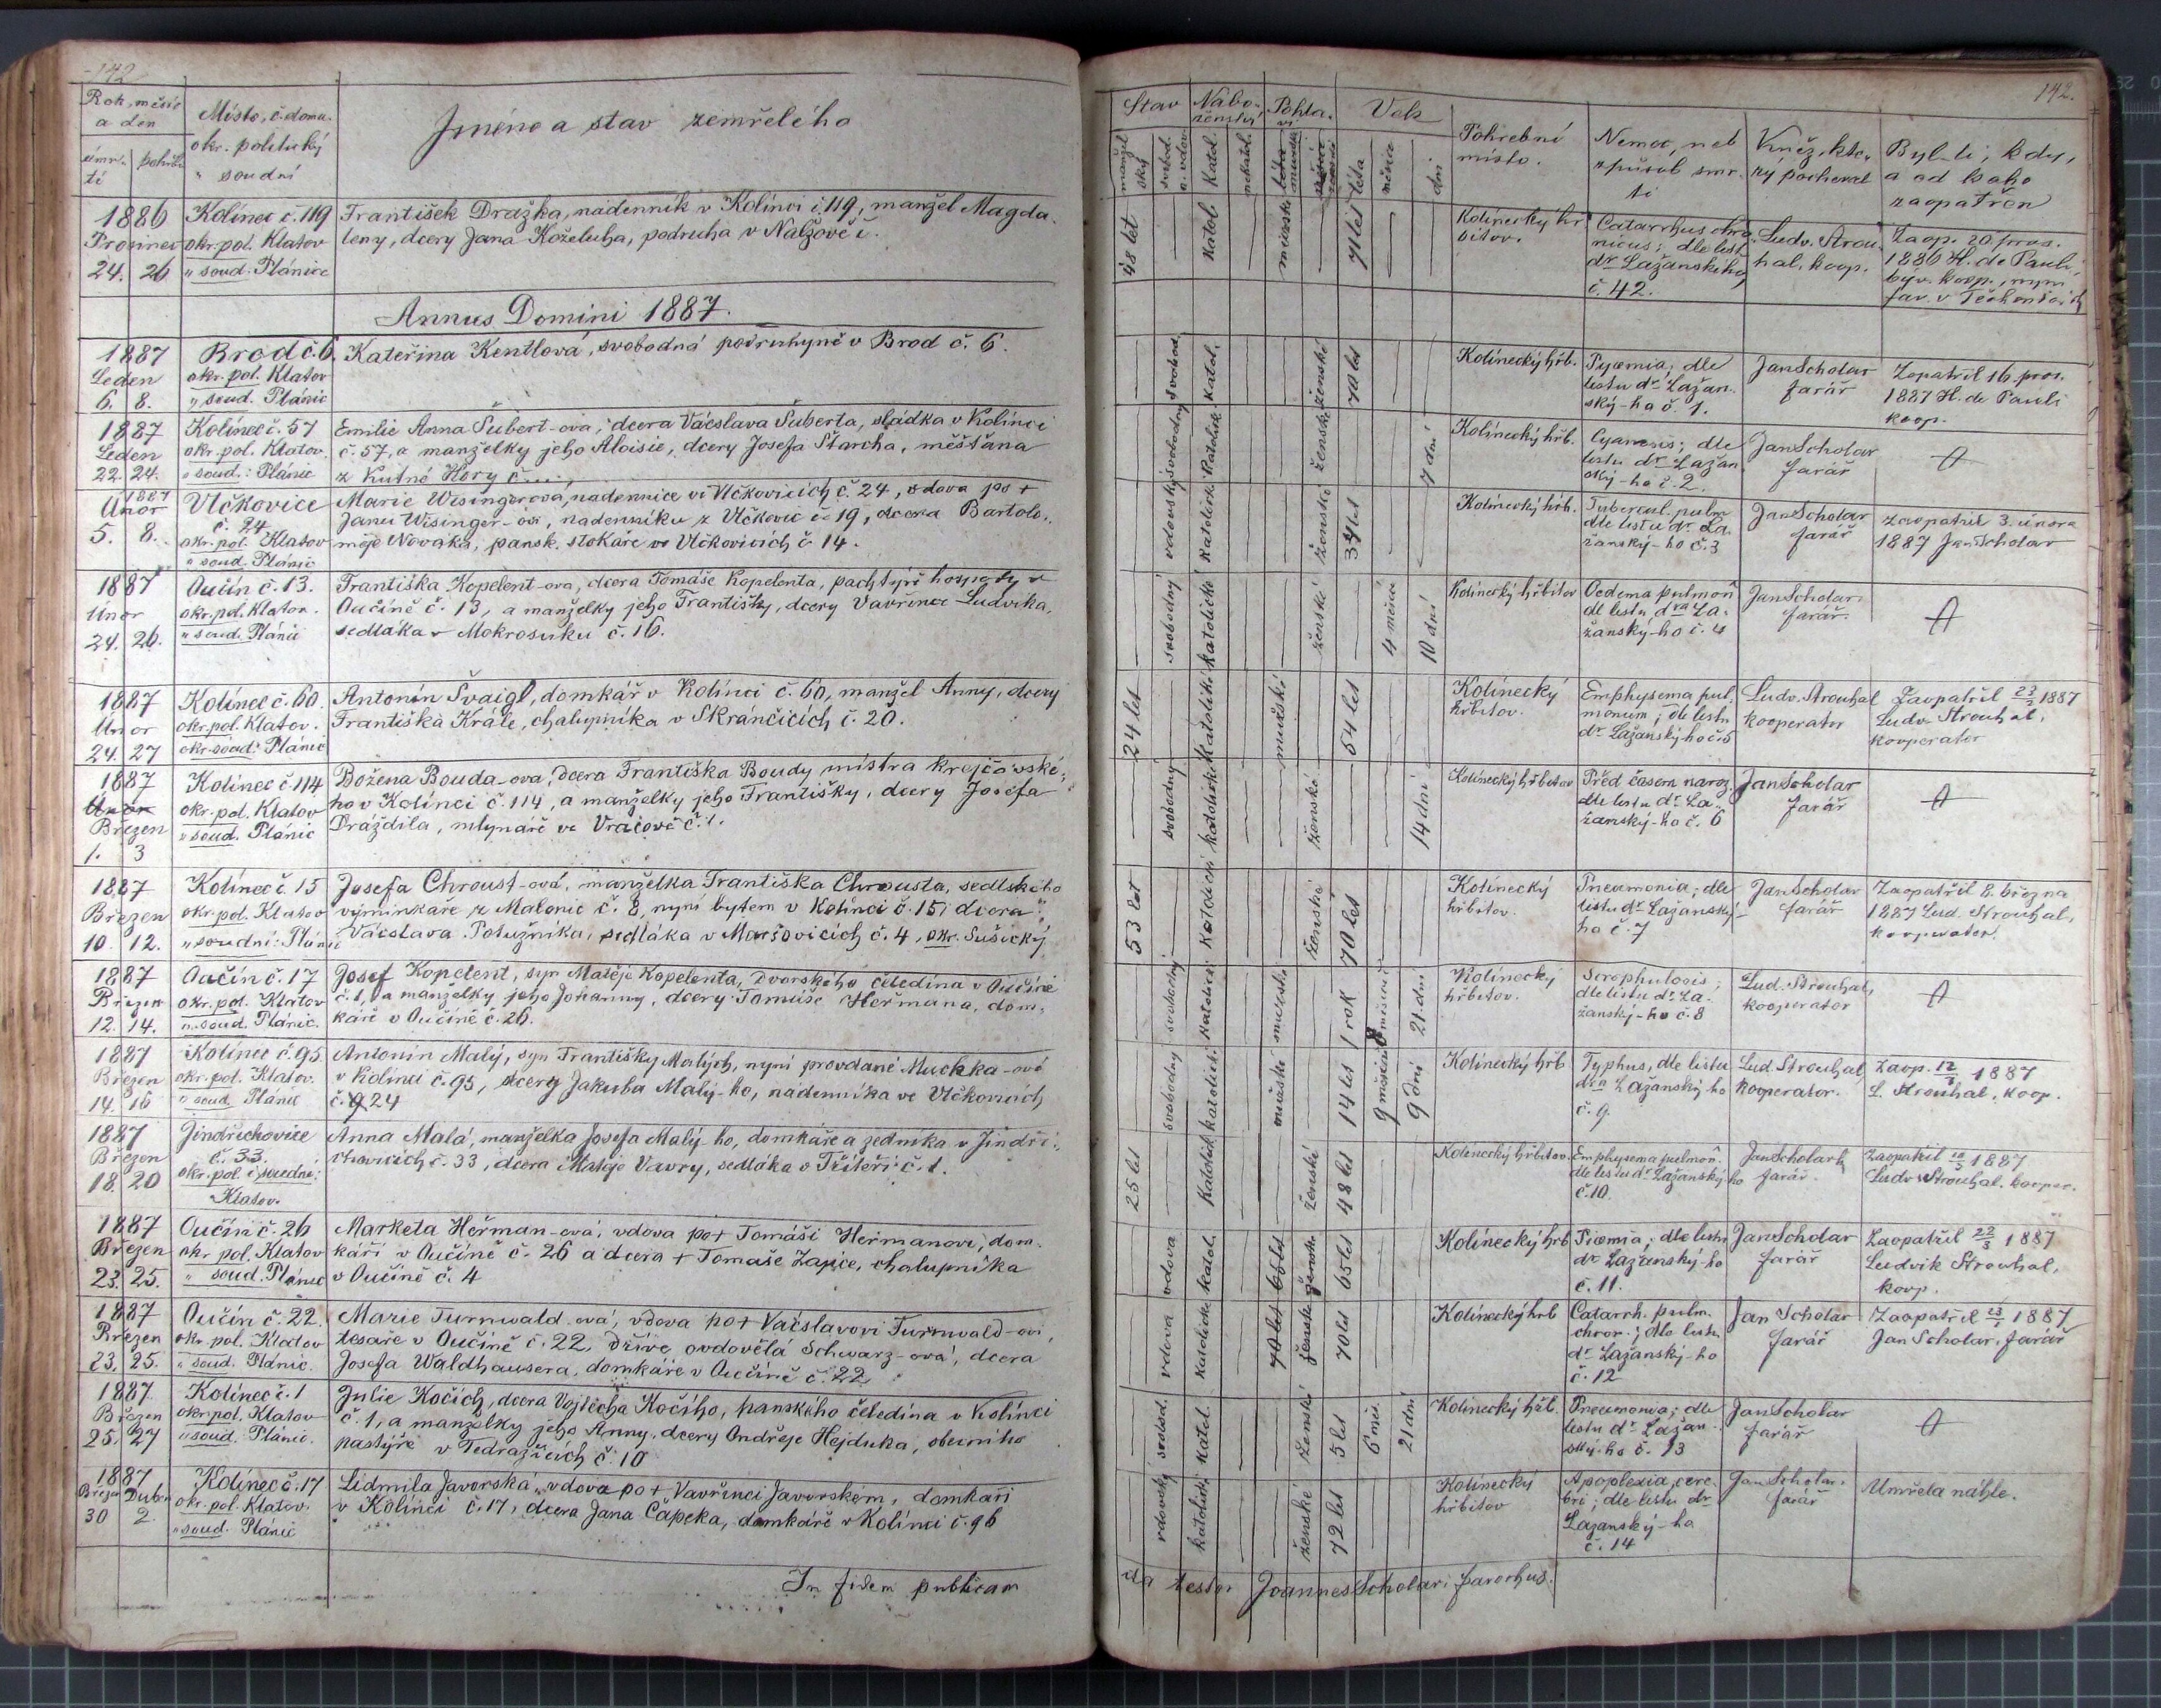 142
Rok, měsíc
a den
úmr-
tí
pohřbu
Místo, č. domu.
okr. politický
" soudní
Jméno a stav zemřelého
1886
Prosinec
24. 26
Kolínec č. 119
okr. pol. Klatov
" soud. Plánice
František Dražka, nádenník v Kolínci č. 119, manžel Magda-
leny, dcery Jana Koželuha, podruha v Nalžově č.
Annus Domini 1887.
1887
Leden
6. 8.
Brod č. 6.
okr. pol. Klatov
" soud. Plánic
Kateřina Kentlová, svobodná podruhyně v Brod č. 6.
1887
Leden
22. 24.
Kolínec č. 57
okr. pol. Klatov.
" soud.: Plánic
Emilie Anna Šubert-ova, dcera Václava Šuberta, sládka v Kolínci
č. 57, a manželky jeho Aloisie, dcery Josefa Štarcha, měšťana
z Kutné Hory č....
1887
Únor
5. 8.
Vlčkovice
č. 24
okr. pol. Klatov
" soud. Plánic
Marie Wisingerová, nádennice ve Vlčkovicích č. 24, vdova po +
Janu Wisinger-ovi, nádenníku z Vlčkovic č. 19, dcera Bartolo-
měje Nováka, pansk. slokaře ve Vlčkovicích č. 14.
1887
Únor
24. 26.
Oučín č. 13.
okr. pol. Klatov.
" soud. Plánic
Františka Kopelent-ova, dcera Tomáše Kopelenta, pachtýře hospody v
Oučíně č. 13, a manželky jeho Františky, dcery Vavřince Ludvíka,
sedláka v Mokrosuku č. 16.
1887
Únor
24. 27
Kolínec č. 60.
okr. pol. Klatov.
okr. soud: Plánic
Antonín Švaigl, domkář v Kolínci č. 60, manžel Anny, dcery
Františka Krále, chalupníka v Skránčicích č. 20.
1887
Únor
Březen
1. 3
Kolínec č. 114
okr. pol. Klatov
" soud. Plánic
Božena Bouda-ova, dcera Františka Boudy mistra krejčovské-
ho v Kolínci č. 114, a manželky jeho Františky, dcery Josefa
Dráždila, mlynáře ve Vračově č. 1.
1887
Březen
10. 12.
Kolínec č. 15
okr. pol. Klatov
" soudní: Plánic
Josefa Chroust-ová, manželka Františka Chrousta, sedlského
výminkáře z Malonic č. 8, nyní bytem v Kolínci č. 15; dcera
Václava Potužníka, sedláka v Maršovicích č. 4, okr. Sušický
1887
Březen
12. 14.
Oučín č. 17
okr. pol. Klatov
" soud. Plánic.
Josef Kopelent, syn Matěje Kopelenta, dvorského čeledína v Oučíně
č. 1, a manželky jeho Johanny, dcery Tomáše Heřmana, dom-
káře v Oučíně č. 26.
1887
Březen
14. 16
Kolínec č. 95
okr. pol. Klatov.
" soud Plánic
Antonín Malý, syn Františky Malých, nyní provdané Muchka-ové
v Kolínci č. 95, dcery Jakuba Malý-ho, nádenníka ve Vlčkovicích
č. 24
1887
Březen
18. 20
Jindřichovice
č. 33.
okr. pol. i soudní:
Klatov.
Anna Malá, manželka Josefa Malý-ho, domkáře a zedníka v Jindři-
chovicích č. 33, dcera Matěje Vavry, sedláka v Tžiteři č. 1.
1887
Březen
23. 25.
Oučín č. 26
okr pol. Klatov
" soud. Plánic
Marketa Heřman-ová, vdova po + Tomáši Heřmanovi, dom-
káři v Oučíně č. 26 a dcera + Tomáše Zajíce, chalupníka
v Oučíně č. 4
1887
Březen
23. 25.
Oučín č. 22.
okr. pol. Klatov
" soud. Plánic.
Marie Turnwald-ová, vdova po + Václavovi Turnwald-ovi,
tesaře v Oučíně č. 22, dříve ovdovělá Schwarz-ová, dcera
Josefa Waldhausera, domkáře v Oučíně č. 22.
1887.
Březen
25. 27
Kolínec č. 1
okr. pol. Klatov
" soud. Plánic.
Julie Kočích, dcera Vojtěcha Kočího, panského čeledína v Kolínci
č. 1, a manželky jeho Anny, dcery Ondřeje Hejduka, obecního
pastýře v Tedražicích č. 10
1887
Březen Dubn
30 2.
Kolínec č. 17
okr. pol. Klatov.
" soud. Plánic
Lidmila Javorská, vdova po + Vavřinci Javorském, domkáři
v Kolínci č. 17, dcera Jana Čapka, domkáře v Kolínci č. 96
In fidem publicam
142.
Stav
Nábo-
ženství
Pohla-
ví
Věk
manžel
ský
svobod.
a. vdov.
Katol.
nekatol.
léta
měsíce
dní
Pohřební
místo.
Nemoc, neb
způsob smr-
ti
Kněz, kte-
rý pochoval
Byl-li, kdy,
a od koho
zaopatřen
48 let
Katol.
mužské
71 let
Kolínecký hř-
bitov.
Catarrhus chro-
nicus; dle listu
dr Lažanského
č. 42.
Ludv. Strou-
hal, koop.
Zaop. 20. pros.
1886 H. de Pauli,
býv. koop., nyní
far. v Těchonicích
svobod.
katol.
ženské
70 let
Kolínecký hřb.
Pyœmia; dle
listu dr. Lažan-
ský-ho č. 1.
Jan Scholar
farář
Zopatřil 16. pros.
1887 H. de Pauli
koop.
svobodný
katolick
ženské
7 dní
Kolínecký hřb.
Cyanosis; dle
listu dr Lažan
ský-ho č. 2.
Jan Scholar
farář
vdovský
katolick.
ženské
34 let
Kolínecký hřb.
Tubercul. pulm
dle listu dr. La-
žanský-ho č. 3
Jan Scholar
farář
zaopatřil 3. února
1887 Jan Scholar
svobodný
katolické
ženské
4 měsíce
10 dní
Kolínecký hřbitov
Oedema pulmoň
dle listu dra La-
žanský-ho č. 4
Jan Scholar
farář.
24 let
Katolické
mužské
54 let
Kolínecký
hřbitov.
Emphysema pul-
monum; dle listu
dr Lažanský-ho č. 5
Ludv. Strouhal
kooperator
Zaopatřil 23/2 1887
Ludv. Strouhal,
kooperator
svobodný
katolické
ženské
14 dní
Kolínecký hřbitov
Před časem naroz.
dle listu dr. La-
žanský-ho č. 6
Jan Scholar
farář
53 let
Katolické
ženské
70 let
Kolínecký
hřbitov.
Pneumonia; dle
listu dr Lažanský-
ho č. 7
Jan Scholar
farář
Zaopatřil 8. března
1887 Lud. Strouhal,
kooperator.
svobodný
katolické
mužské
1 rok
8 měsíců
21. dní
Kolínecký
hřbitov.
Scrophulosis;
dle listu dr. La-
žanský-ho č. 8
Lud. Strouhal,
kooperator
svobodný
katolické
mužské
14 let
9 měsíců
9 dní
Kolínecký hřb
Typhus, dle listu
dra Lažanský-ho
č. 9.
Lud. Strouhal,
kooperator.
Zaop. 12/3 1887
L. Strouhal, koop.
25 let
Katolick
ženské
48 let
Kolínecký hřbitov.
Emphysema pulmoň.
dle listu dr Lažanský-ho
č. 10.
Jan Scholar
farář.
Zaopatřil 1887
Ludv. Strouhal. kooper.
vdova
katol.
ženské
65 let
Kolínecký hřb
Piœmia; dle listu
dr Lažanský-ho
č. 11.
Jan Scholar
farář
Zaopatřil 22/3 1887
Ludvík Strouhal,
koop.
vdova
katolické
ženské
70 let
Kolínecký hřb
Catarrh. pulm.
chron.; dle listu
dr Lažanský-ho
č. 12
Jan Scholar
farář
Zaopatřil 1887
Jan Scholar, farář
svobod.
katol.
ženské
5 let
6 měs.
21 dní
Kolínecký hřb.
Pneumonia; dle
listu dr Lažan-
ský-ho č. 13
Jan Scholar
farář
vdovský
katolické
ženské
72 let
Kolínecký
hřbitov
Apoplexia cere-
bri; dle listu dr
Lažanský-ho
č. 14
Jan Scholar.
farář
Umřela náhle.
ita testor Joannes Scholar, parochus.